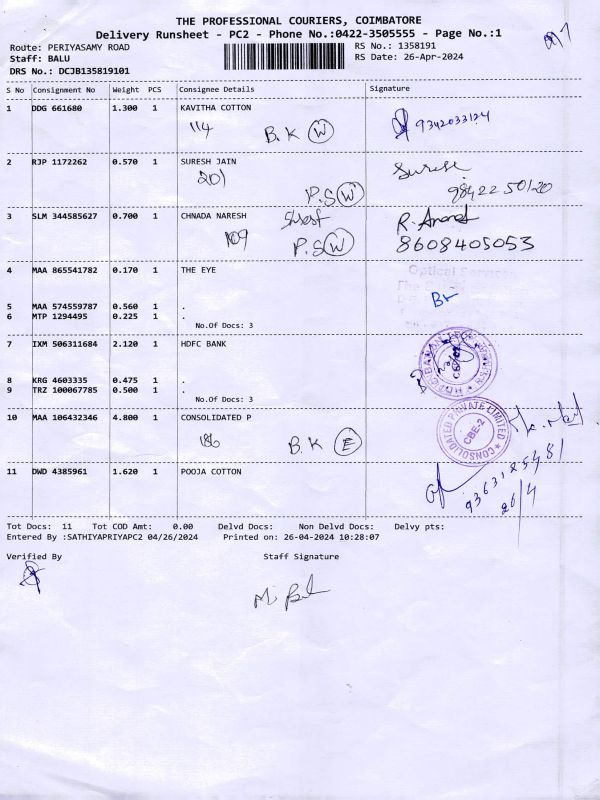 THE PROFESSIONAL COURIERS, COIMBATORE
Delivery Runsheet - PC2 - Phone No.:0422-3505555 - Page No.:1
Route: PERIYASAMY ROAD RS No.: 1358191
Staff: BALU RS Date: 26-Apr-2024
DRS No.: DCJB135819101
S No Consignment No Weight PCS Consignee Details Signature
1 DDG 661680 1.300 1 KAVITHA COTTON
114 B.K W 9342033124
2 RJP 1172262 0.570 1 SURESH JAIN
201 P.S W 98422 50120
3 SLM 344585627 0.700 1 CHNADA NARESH
109 P.S W 8608405053
4 MAA 865541782 0.170 1 THE EYE
Optical Services
5 MAA 574559787 0.560 1 .
6 MTP 1294495 0.225 1 .
No.Of Docs: 3
7 IXM 506311684 2.120 1 HDFC BANK
8 KRG 4603335 0.475 1 .
9 TRZ 100067785 0.500 1 .
No.Of Docs: 3
10 MAA 106432346 4.800 1 CONSOLIDATED P
186 B.K E
CONSOLIDATED PRIVATE LIMITED
CBE-2
11 DWD 4385961 1.620 1 POOJA COTTON
26/4
Tot Docs: 11 Tot COD Amt: 0.00 Delvd Docs: Non Delvd Docs: Delvy pts:
Entered By :SATHIYAPRIYAPC2 04/26/2024 Printed on: 26-04-2024 10:28:07
Verified By Staff Signature